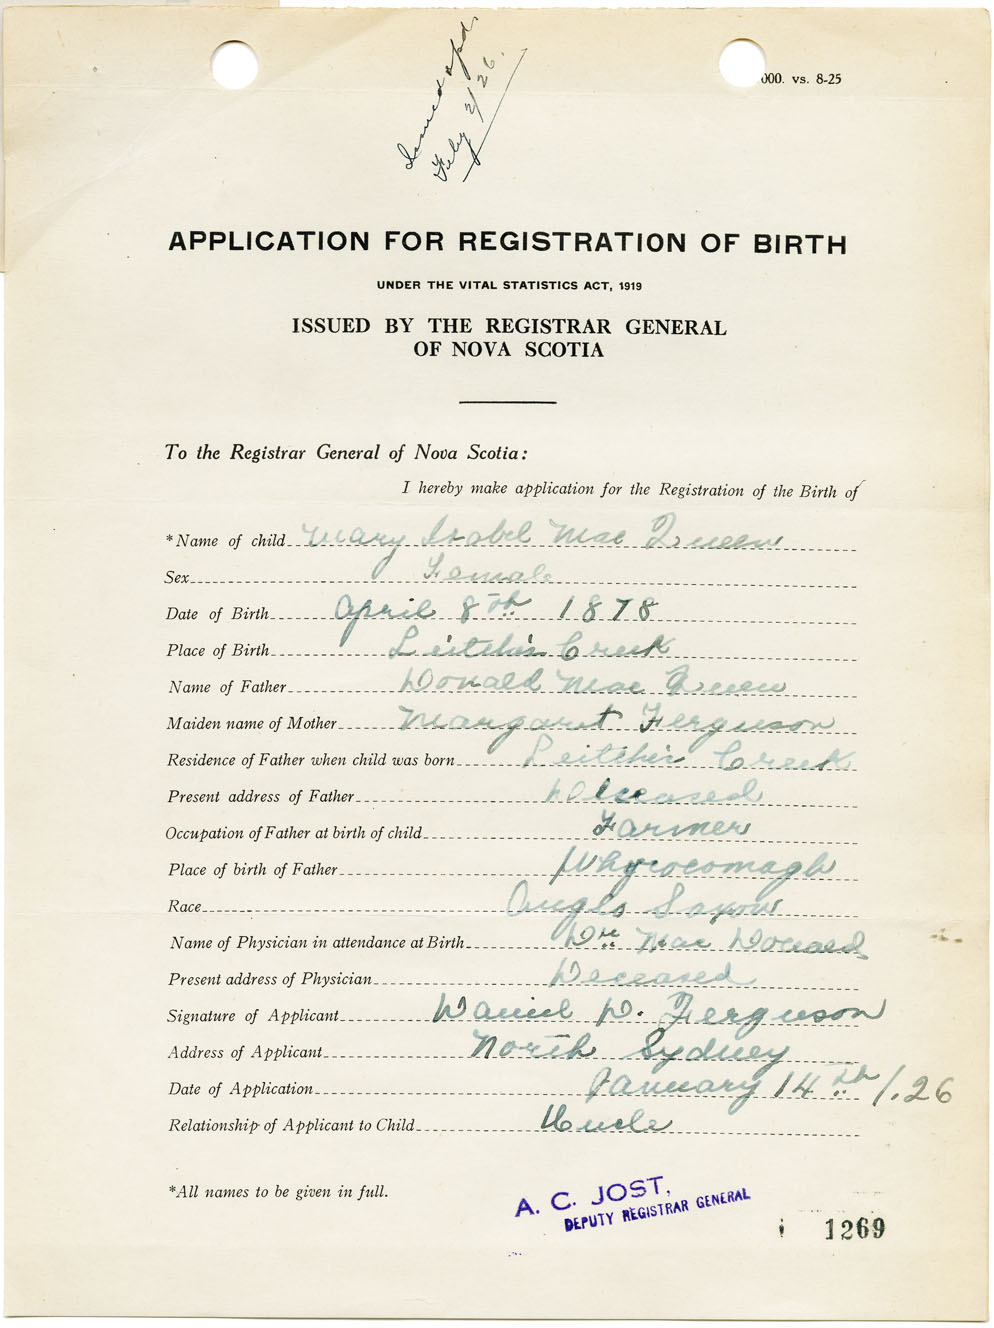 Issued apd
Feby 2/26.
000. vs. 8-25
APPLICATION FOR REGISTRATION OF BIRTH
UNDER THE VITAL STATISTICS ACT, 1919
ISSUED BY THE REGISTRAR GENERAL
OF NOVA SCOTIA
To the Registrar General of Nova Scotia:
I hereby make application for the Registration of the Birth of
*Name of child Mary Isabel Mac Queen
Sex Female
Date of Birth April 8th 1878
Place of Birth Leitche's Creek
Name of Father Donald Mac Queen
Maiden name of Mother Margaret Ferguson
Residence of Father when child was born Leitche's Creek
Present address of Father Deceased
Occupation of Father at birth of child Farmer
Place of birth of Father Whycocomagh
Race Anglo Saxon
Name of Physician in attendance at Birth Dr. Mac Donald
Present address of Physician Deceased
Signature of Applicant Daniel D. Ferguson
Address of Applicant North Sydney
Date of Application January 14th /.26
Relationship of Applicant to Child Uncle
*All names to be given in full.
A. C. JOST,
DEPUTY REGISTRAR GENERAL
1269